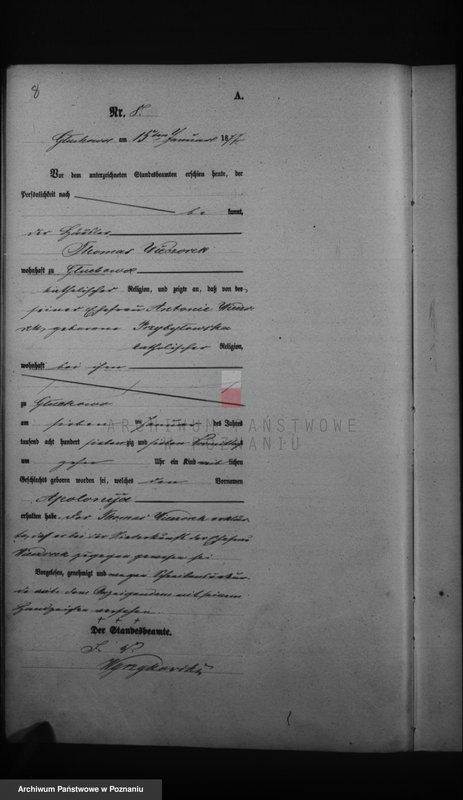 8
A.
Nr. 8.
Gluchowo am 15ten Januar 1877
Vor dem unterzeichneten Standesbeamten erschien heute, der
Persönlichkeit nach
be kannt,
der Häusler
Thomas Wieczorek
wohnhaft zu Gluchowo
katholischer Religion, und zeigte an, daß von der
seiner Ehefrau Antonie Wieczo
rek, geborene Przybylowska
katholischer Religion,
wohnhaft bei ihm
zu Gluchowo
am sieben ten Januar des Jahres
tausend acht hundert siebenzig und sieben Vormittags
um zehn Uhr ein Kind lichen
Geschlechts geboren worden sei, welches den Vornamen
Apolonija
erhalten habe. Der Thomas Wieczorek erklär
te, daß er bei der Niederkunft der Ehefrau
Wieczorek zugegen gewesen sei
Vorgelesen, genehmigt und wegen Schreibensunkun
de mit dem Anzeigenden mit seinem
Handzeichen versehen
+ + +
Der Standesbeamte.
ARCHIWUM PAŃSTWOWE
W POZNANIU
Archiwum Państwowe w Poznaniu